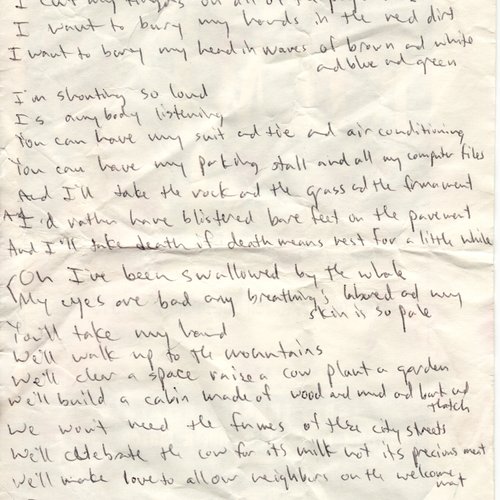 I want to bury my hands in the red dirt
I want to bury my head in waves of brown and white
and blue and green
I'm shouting so loud
Is anybody listening
You can have my suit and tie and air conditioning
You can have my parking stall and all my computer files
And I'll take the rock and the grass and the firmament
And I'd rather have blistered bare feet on the pavement
And I'll take death if death means rest for a little while
Oh I've been swallowed by the whale
My eyes are bad any breathing's labored and my
skin is so pale
You'll take my hand
We'll walk up to the mountains
We'll clear a space raise a cow plant a garden
We'll build a cabin made of wood and mud and bark and
thatch
We won't need the fumes of these city streets
We'll celebrate the cow for its milk not its precious meat
We'll make love to all our neighbors on the welcome
mat